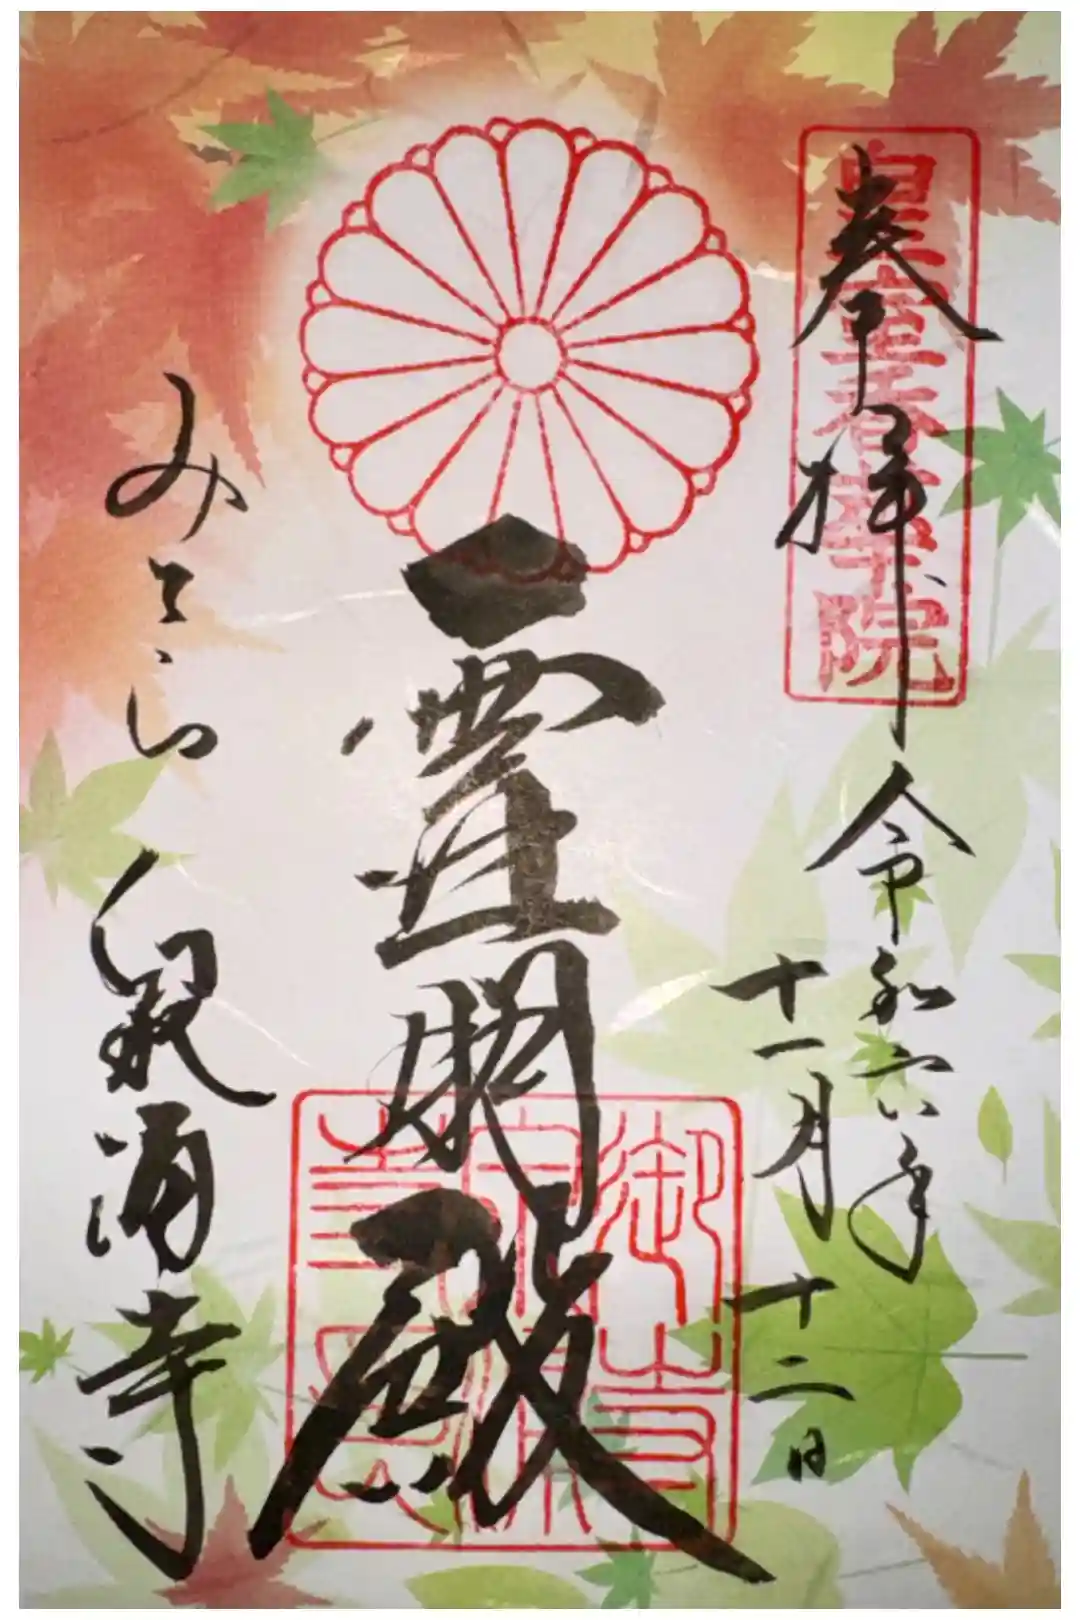 皇室香華院
奉拝
令和六年
十一月十二日
霊明殿
御寺
みてら 泉涌寺